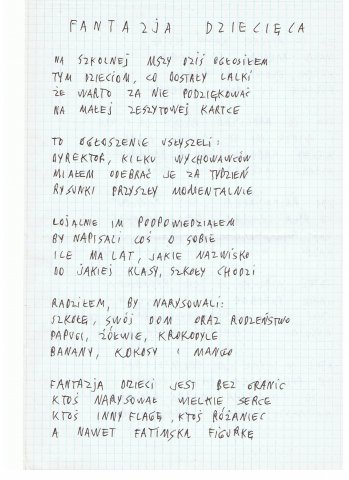 FANTAZJA DZIECIĘCA
NA SZKOLNEJ MSZY DZIŚ OGŁOSIŁEM
TYM DZIECIOM, CO DOSTAŁY LALKI
ŻE WARTO ZA NIE PODZIĘKOWAĆ
NA MAŁEJ ZESZYTOWEJ KARTCE
TO OGŁOSZENIE USŁYSZELI:
DYREKTOR, KILKU WYCHOWAWCÓW
MIAŁEM ODEBRAĆ JE ZA TYDZIEŃ
RYSUNKI PRZYSZŁY MOMENTALNIE
LOJALNIE IM PODPOWIEDZIAŁEM
BY NAPISALI COŚ O SOBIE
ILE MA LAT, JAKIE NAZWISKO
DO JAKIEJ KLASY, SZKOŁY CHODZI
RADZIŁEM, BY NARYSOWALI:
SZKOŁĘ, SWÓJ DOM ORAZ RODZEŃSTWO
PAPUGI, ŻÓŁWIE, KROKODYLE
BANANY, KOKOSY I MANGO
FANTAZJA DZIECI JEST BEZ GRANIC
KTOŚ NARYSOWAŁ WIELKIE SERCE
KTOŚ INNY FLAGĘ, KTOŚ RÓŻANIEC
A NAWET FATIMSKĄ FIGURKĘ